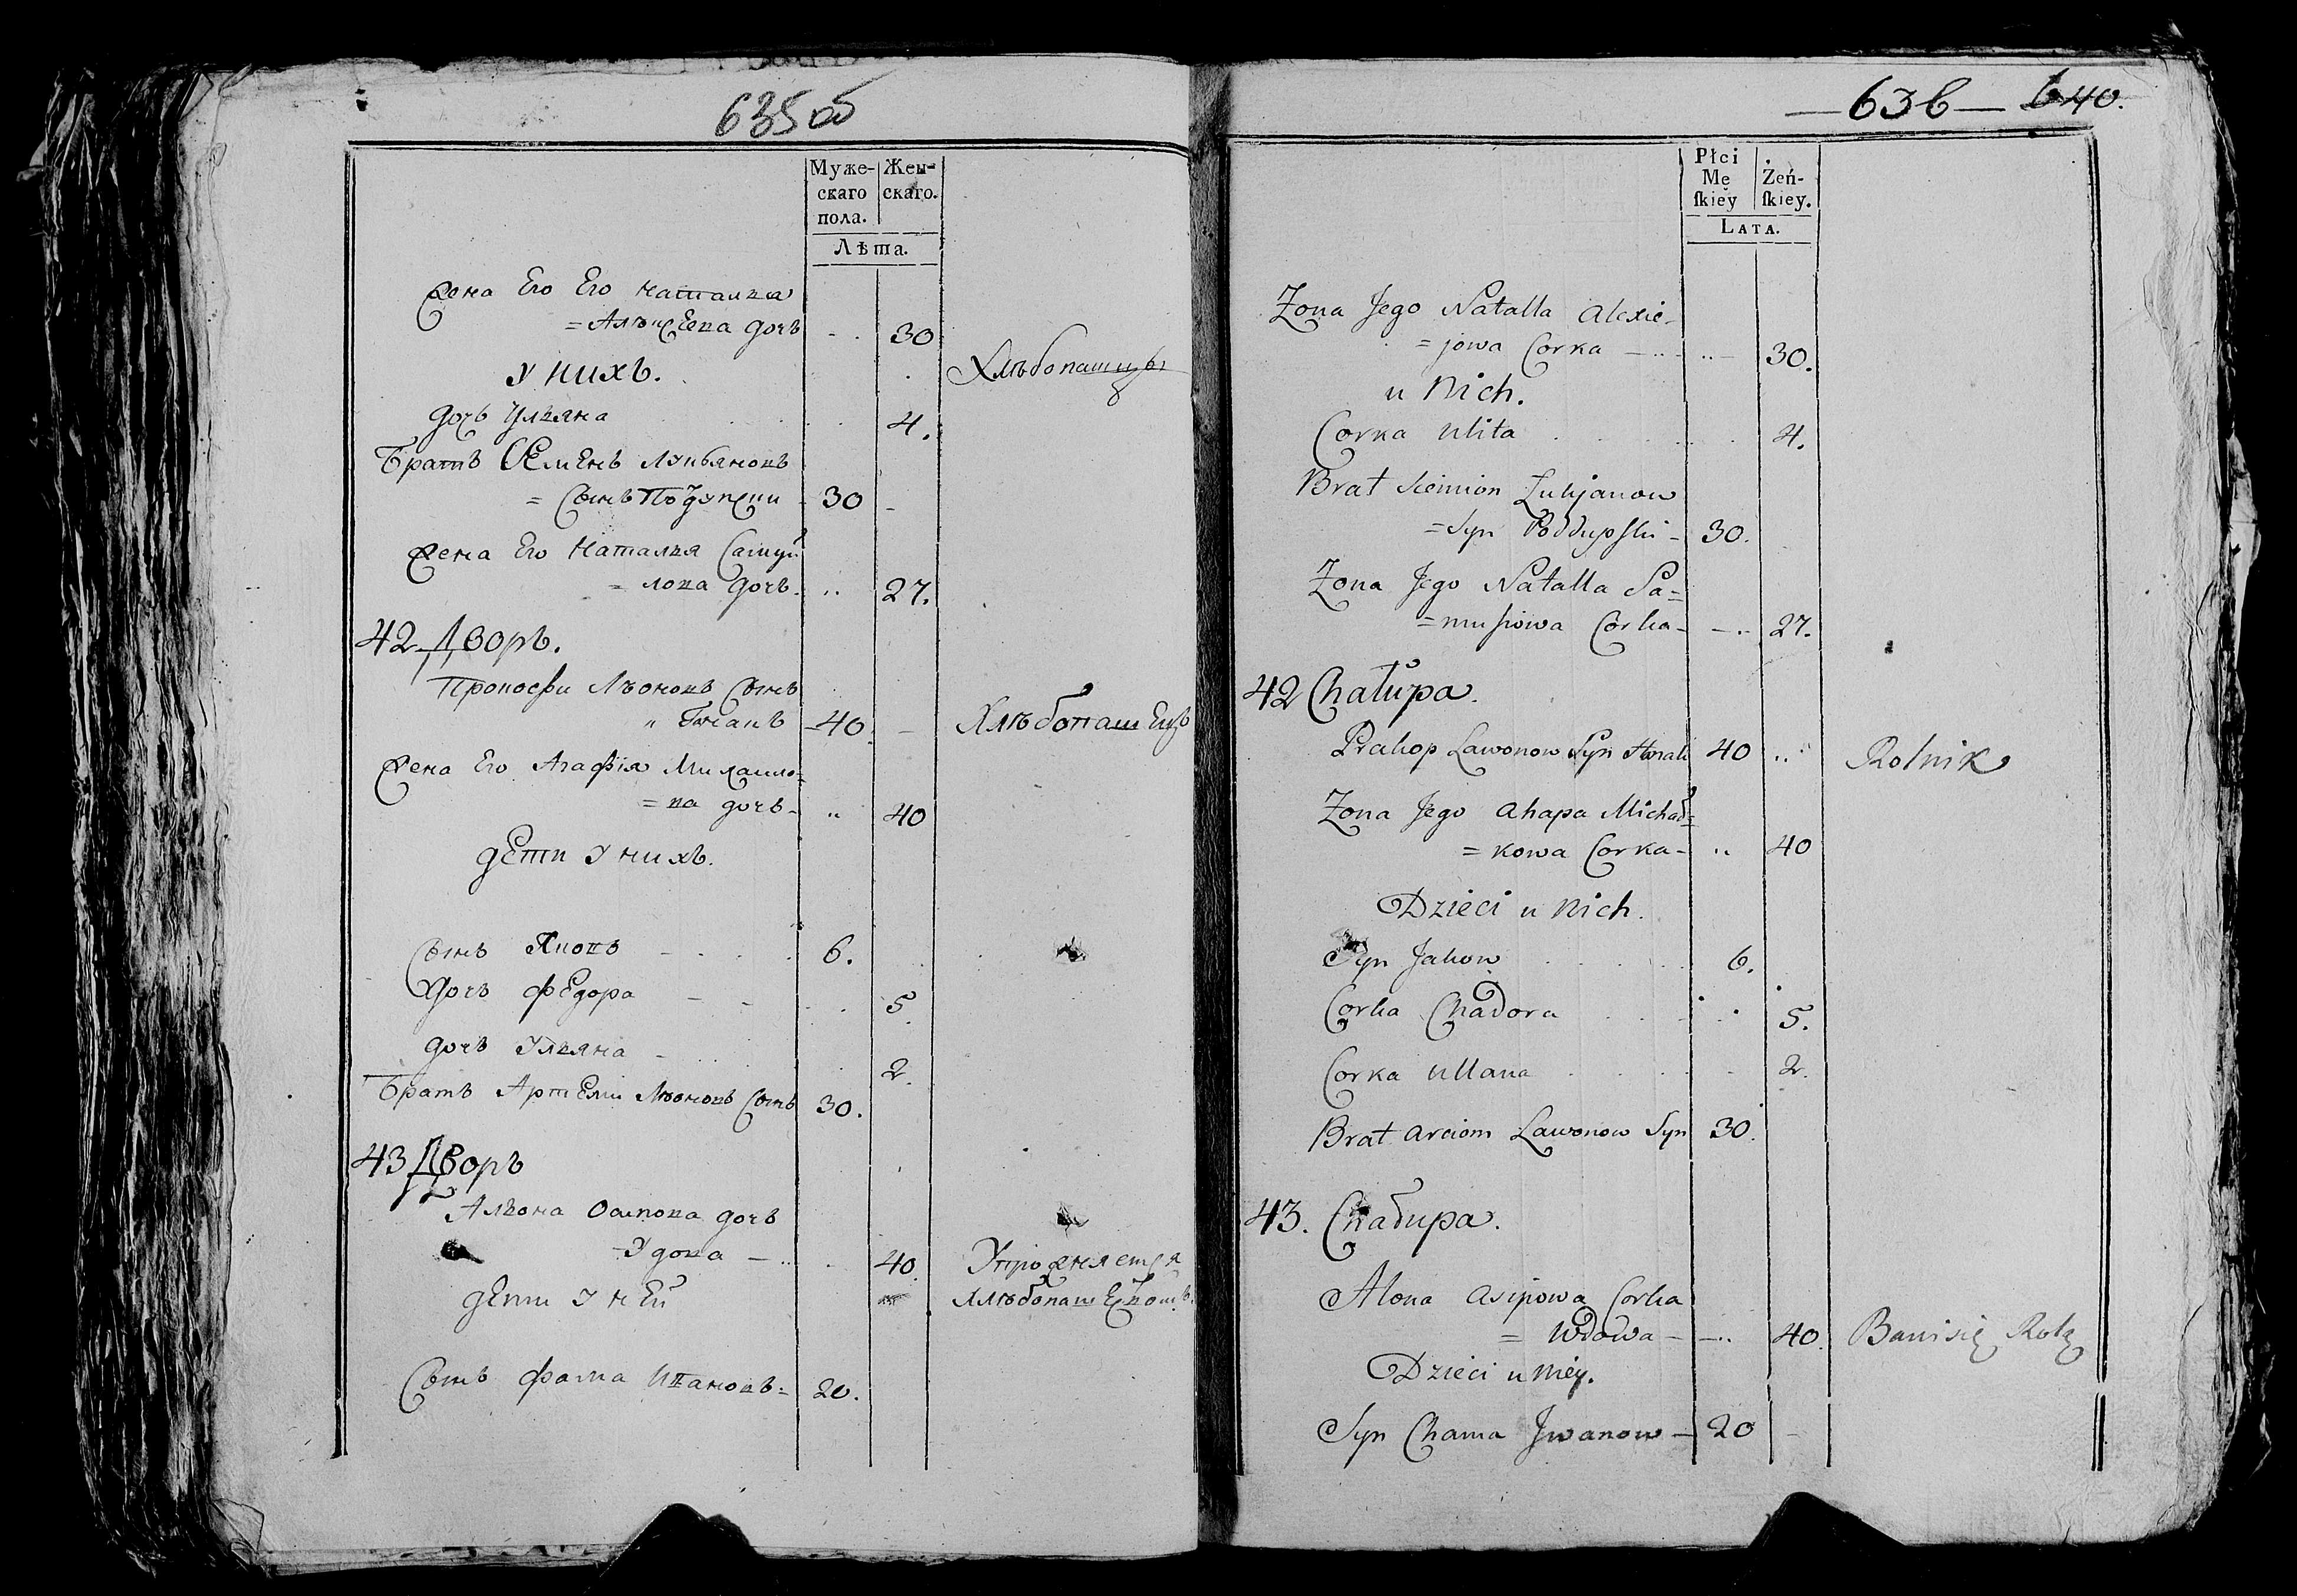 635 об
Муже-
скаго
пола.
Жен-
скаго.
Лѣта.
Жена Его Его Наталка
= Алексеева дочь - . 30
У нихъ.
Хлѣбопашцы
дочь Ульяна 4.
Братъ Семенъ Лукьяновъ
= Сынъ Подупски - 30 -
Жена Его Наталья Самуй
= лова дочь. .. 27.
42 Дворъ.
Прокофи Лѣоновъ Сынъ
„ Гнанъ - 40. - Хлѣбопашецъ
Жена Его Агафія Михаило-
= ва дочь - .. 40
дети У нихъ.
Сынъ Яковъ 6.
Дочь Федора 5.
дочь Ульяна 2.
Братъ Артеми Лѣоновъ Сынъ 30.
43 Дворъ
Алѣона Осипова дочь
- Удова - 40. Упражняется
дети У Ней Хлѣбопашествомъ.
Сынъ Фама Ивановъ = 20.
— 636 — 640.
Płci
Mę
ſkiey
Żeń-
ſkiey.
LATA.
Zona Jego Natalla Alexie-
= jowa Corka — 30.
u Nich.
Corka Ulita 4.
Brat Siemion Łukjanow
= Syn Poddupski - 30.
Zona Jego Natalla Sa=
= musiowa Corka - — .. 27.
42 Chałupa.
Prakop Lawonow Syn Hnali 40 .. Rolnik
Zona Jego Ahapa Michał=
= kowa Corka - .. 40
Dzieci u Nich.
Syn Jakow 6.
Corka Chadora 5.
Corka Ullana 2.
Brat Arciom Lawonow Syn 30.
43. Chałupa.
Alona Asipowa Corka
= Wdowa — .. 40. Bawi się Rolą
Dzieci u Niéy.
Syn Chama Jwanow — 20 -